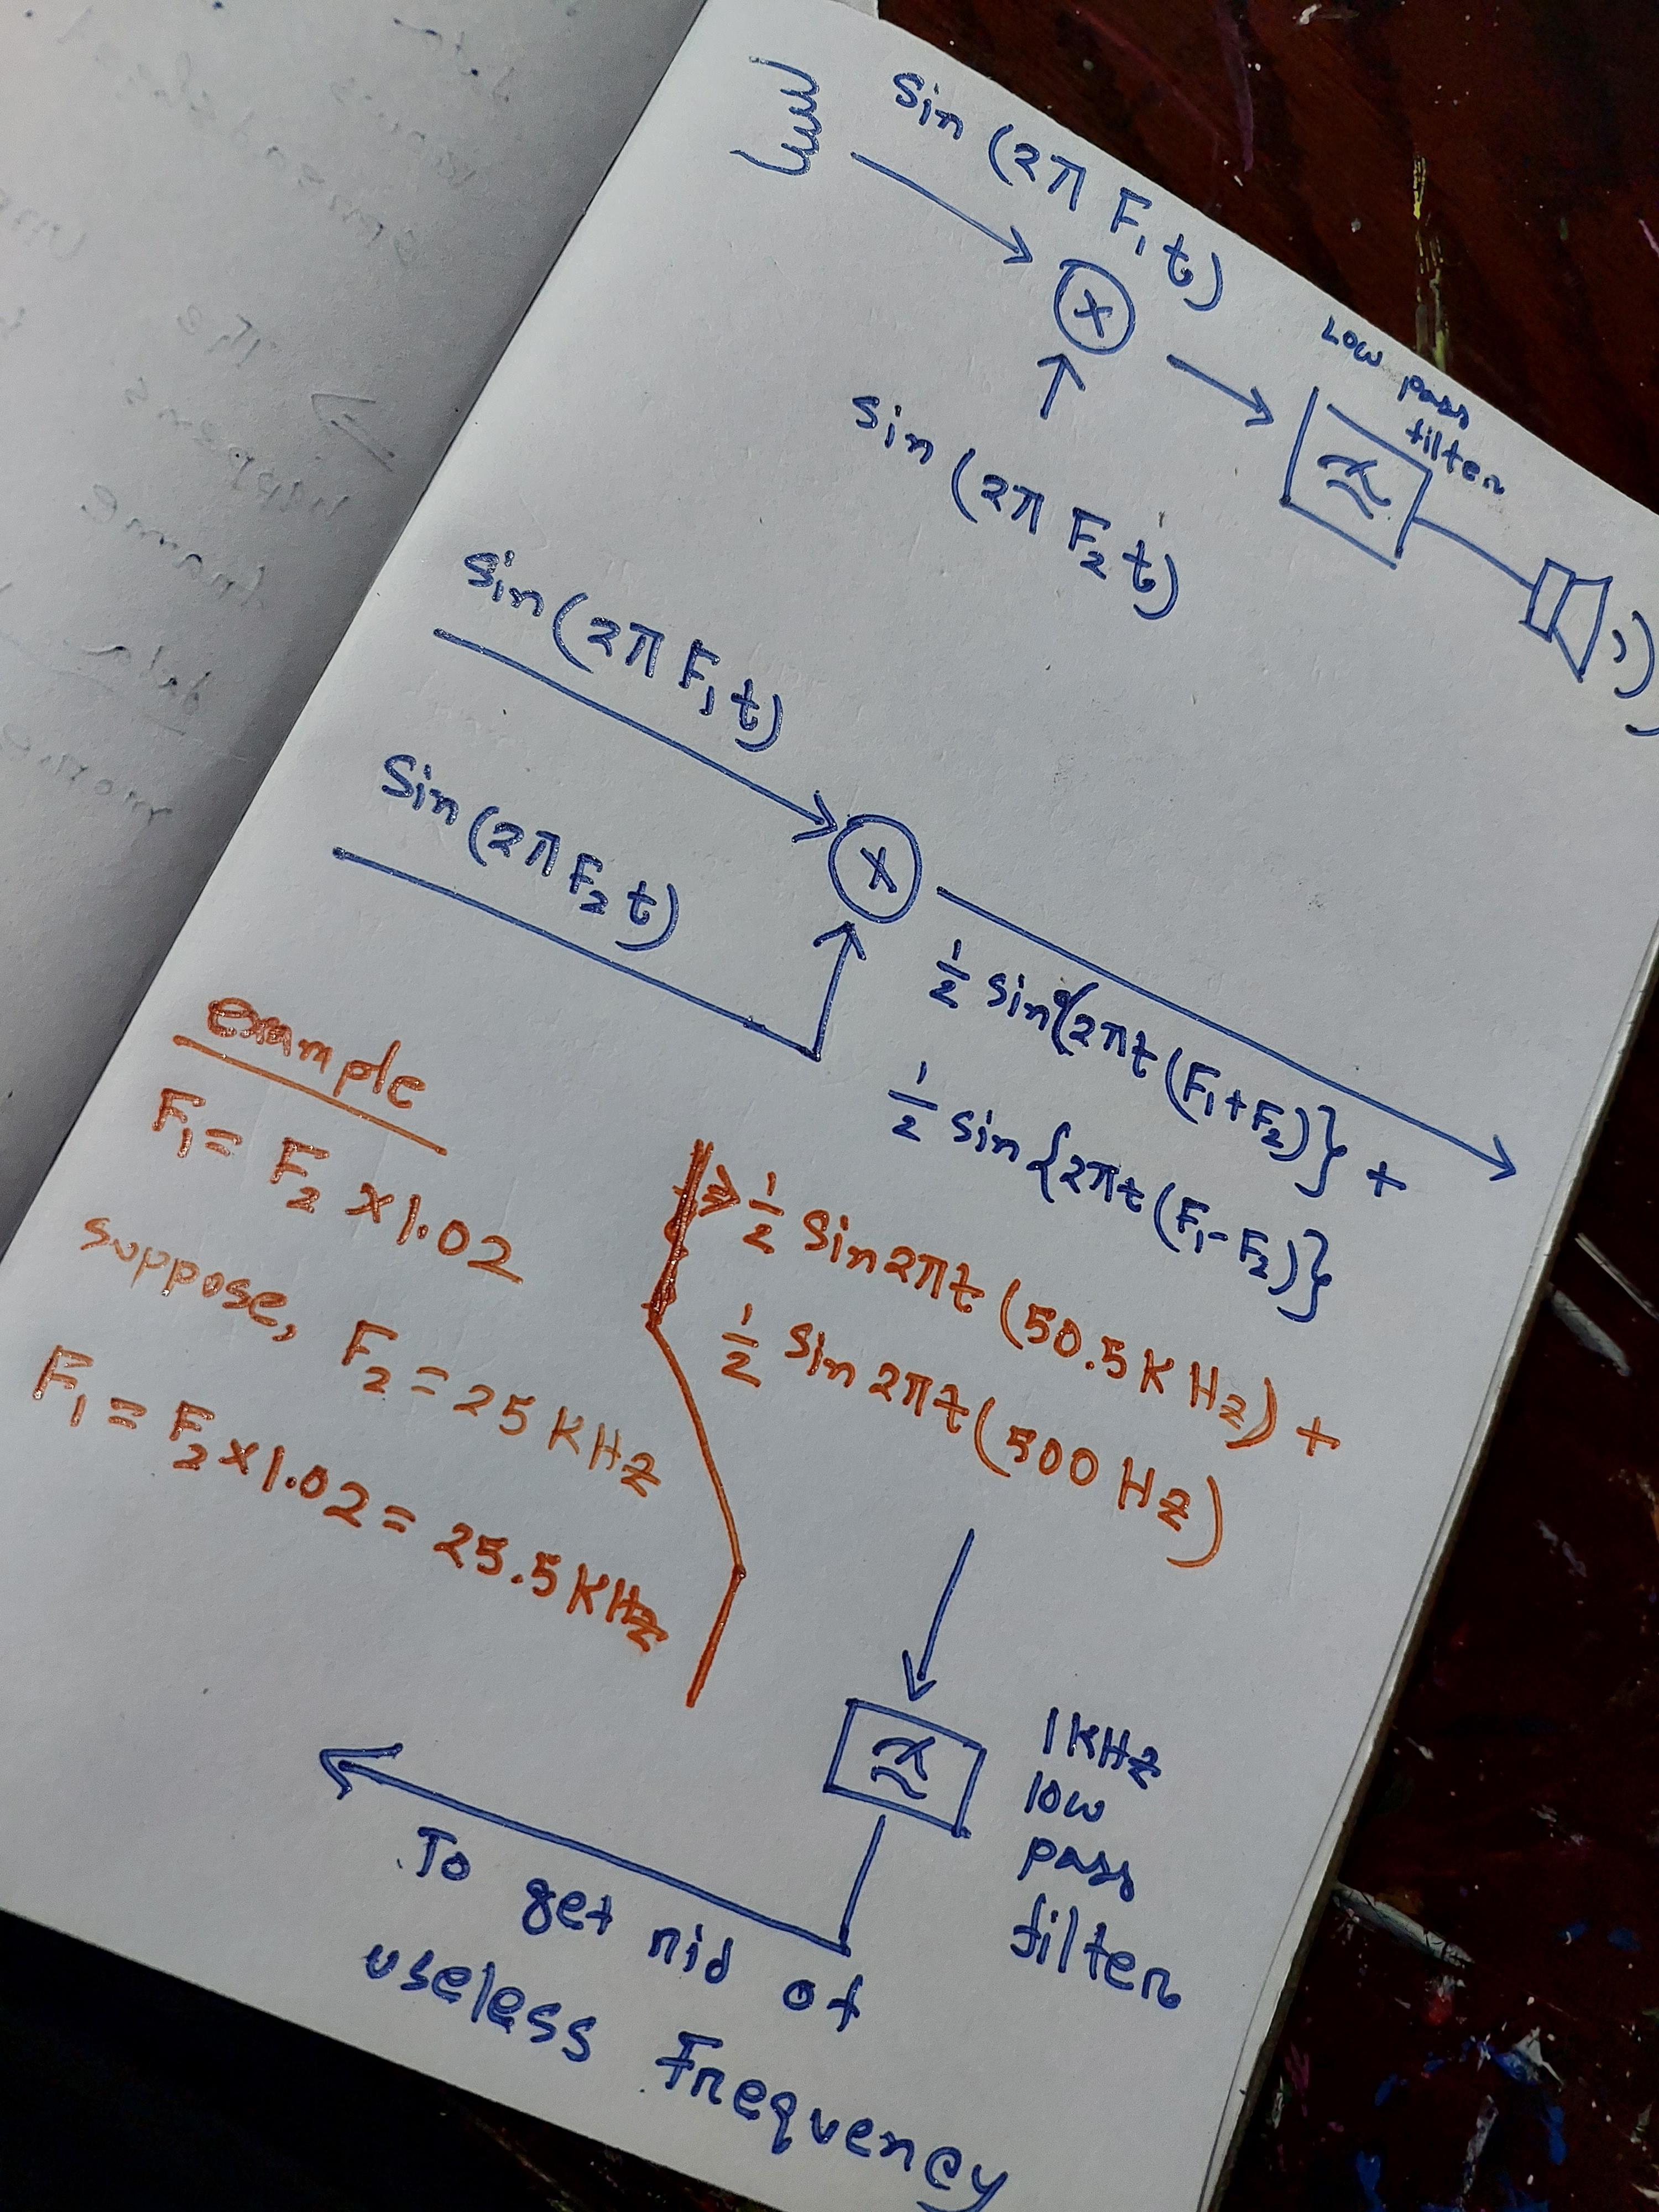 Sin (2π F₁ t)
X
Low pass filter
Sin (2π F₂ t)
Sin (2π F₁ t)
Sin (2π F₂ t)
X
½ Sin{2πt (F₁+F₂)} +
½ Sin{2πt (F₁-F₂)}
example
F₁ = F₂ ×1.02
suppose, F₂ = 25 KHz
F₁ = F₂×1.02 = 25.5 KHz
½ Sin 2πt (50.5 KHz) +
½ Sin 2πt (500 Hz)
1KHz
low
pass
filter
To get rid of
useless Frequency